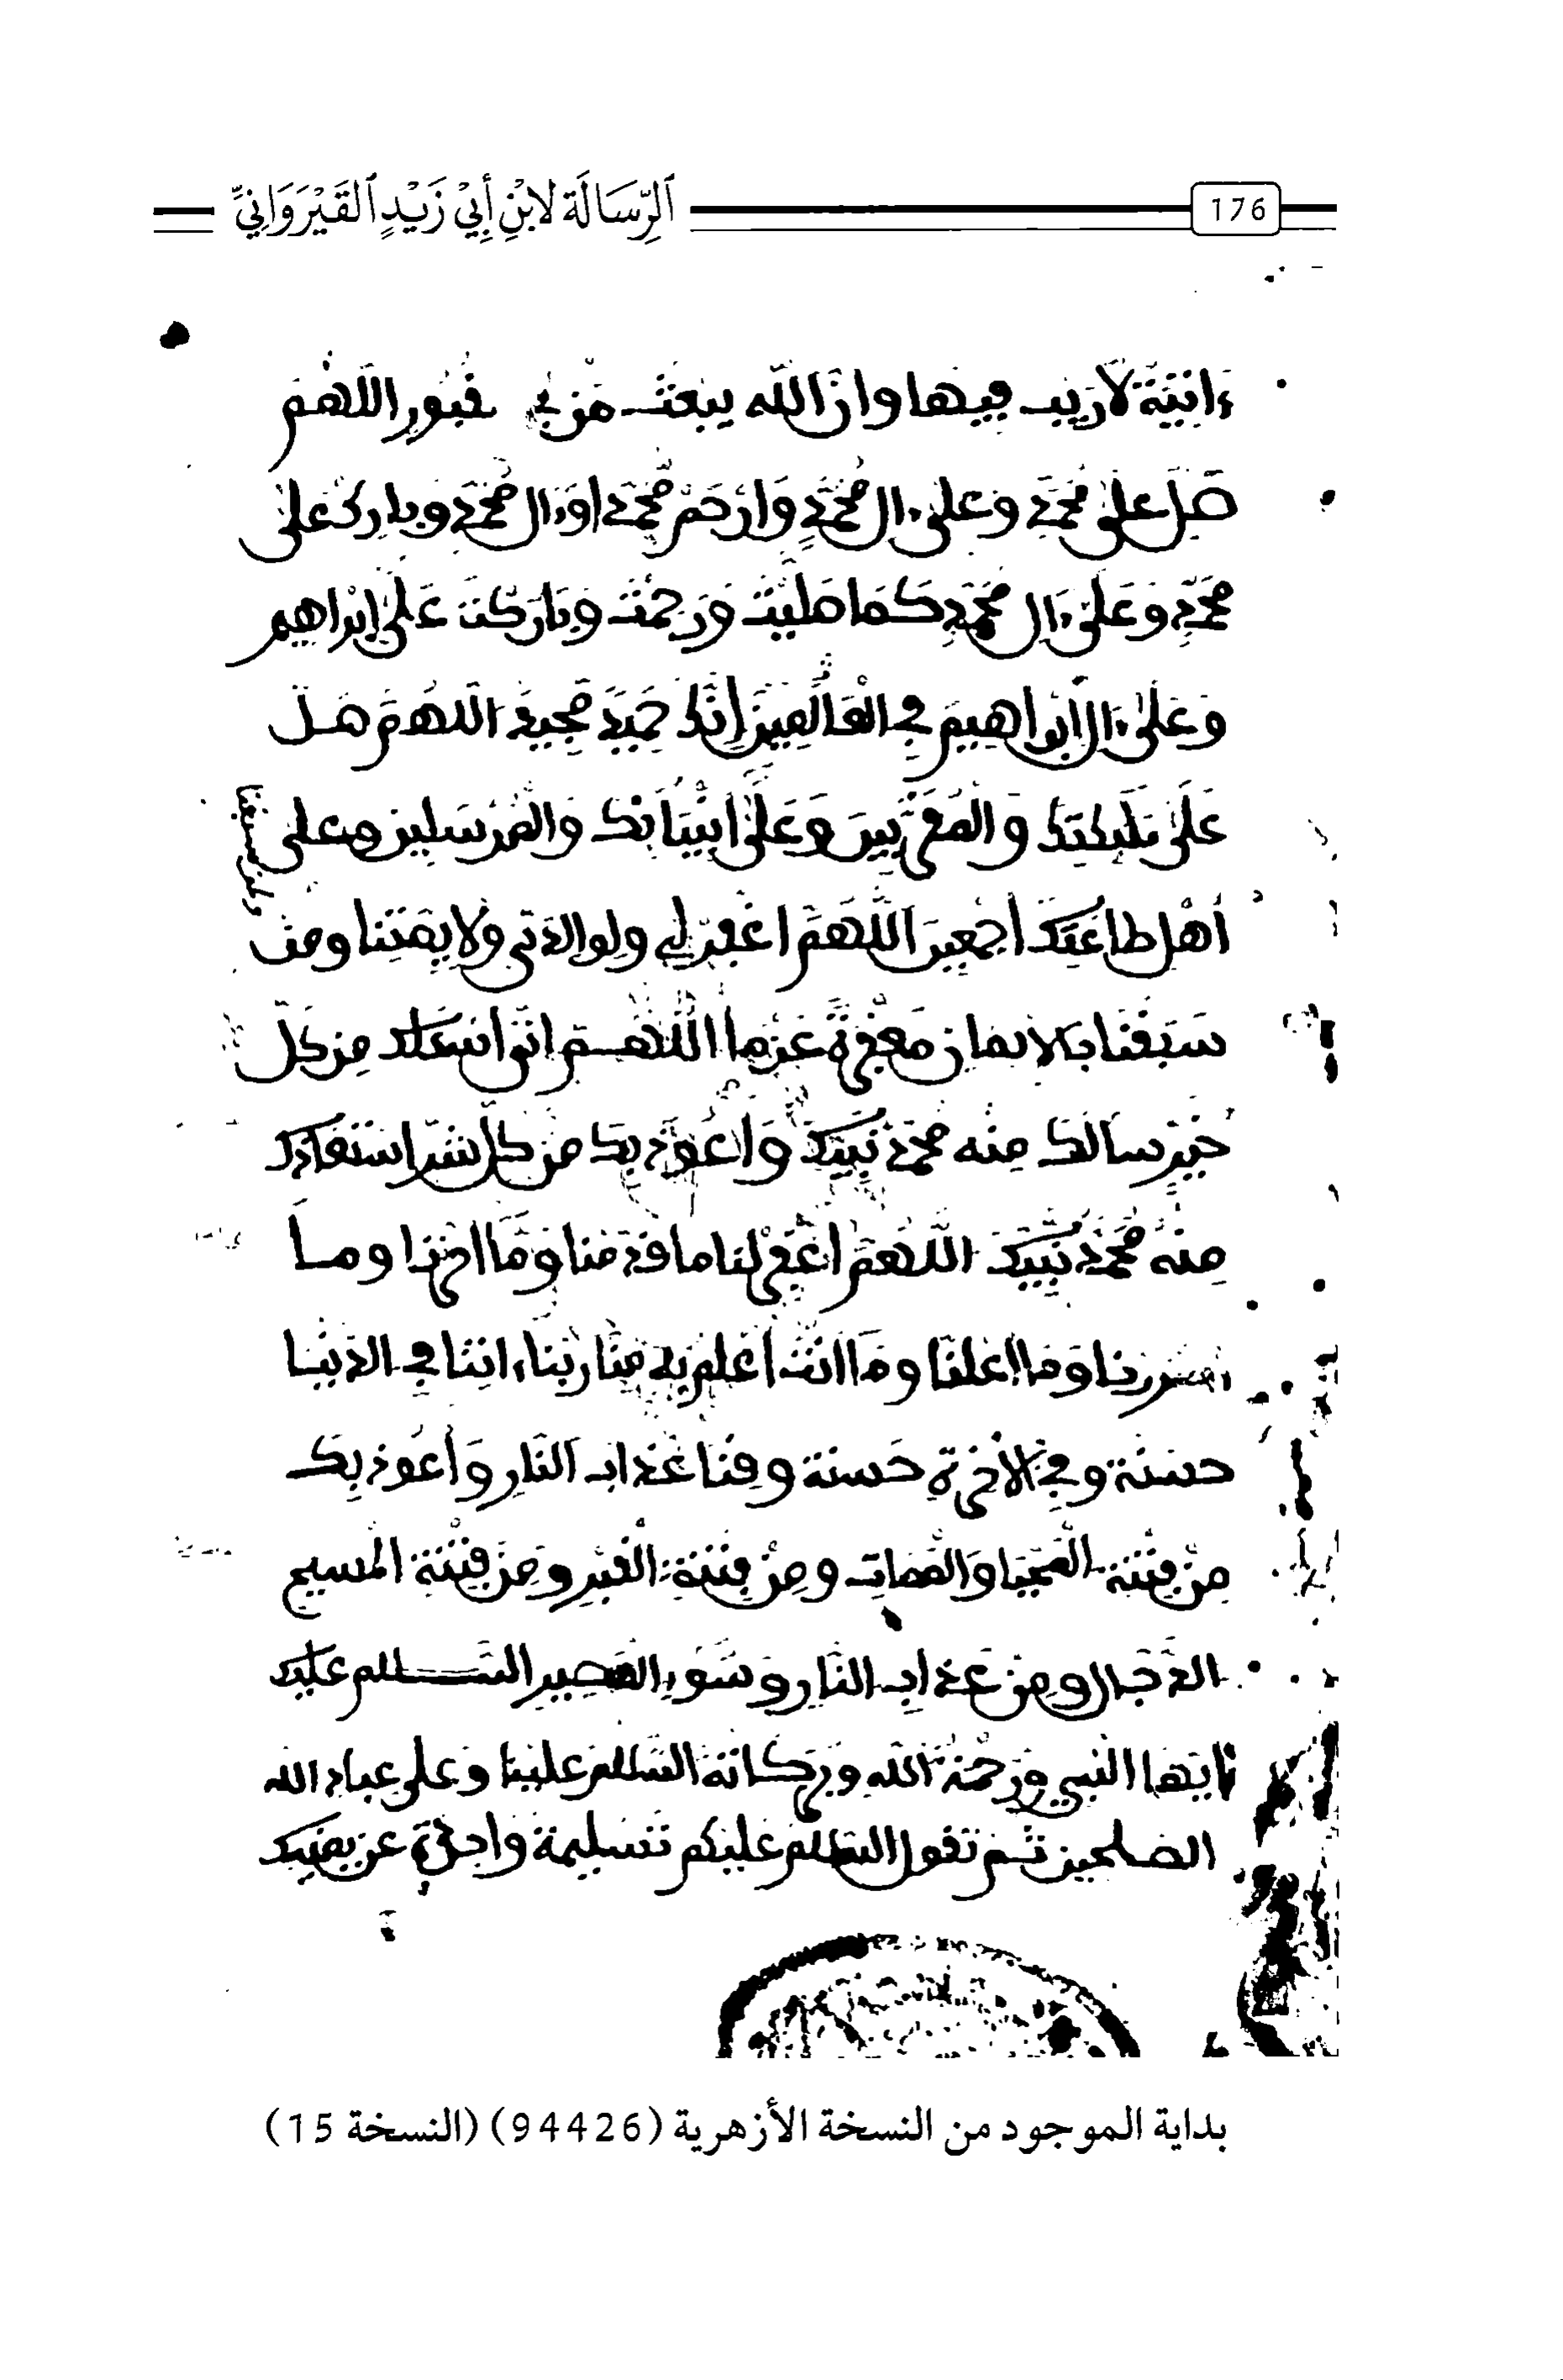 176
اَلرِّسَالَة لابْنِ أَبِيْ زَيْدٍ اَلقَيْرَوَانِيِّ
ءاتية لا ريب فيها وان الله يبعث من في القبور اللهم
صل على محمد وعلى ءال محمد وارحم محمدا وءال محمد وبارك على
محمد وعلى ءال محمد كما صليت ورحمت وباركت على ابراهيم
وعلى ءال ابراهيم في العالمين انك حميد مجيد اللهم صل
على مليكتك والمقربين وعلى انبيائك والمرسلين وعلى
أهل طاعتك اجمعين اللهم اغفر لي ولوالدي ولايمتنا ومن
سبقنا بالايمان مغفرة عزما اللهم اني اسئلك من كل
خير سالك منه محمد نبيك واعوذ بك من كل شر استعاذك
منه محمد نبيك اللهم اغفر لنا ما قدمنا وما اخرنا وما
اسررنا وما اعلنا وما انت أعلم به منا ربنا ءاتنا في الدنيا
حسنة وفي الاخرة حسنة وقنا عذاب النار وأعوذ بك
من فتنة المحيا والممات ومن فتنة القبر ومن فتنة المسيح
الدجال ومن عذاب النار وسوء المصير السلم عليك
ايها النبي ورحمة الله وبركاته السلم علينا وعلى عباد الله
الصلحين ثم تقول السلم عليكم تسليمة واحدة عن يمينك
بداية الموجود من النسخة الأزهرية (94426) (النسخة 15)